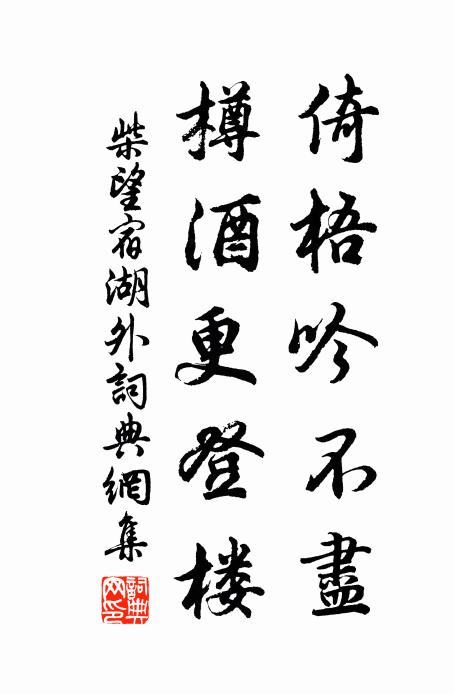 倚梧吟不盡
樽酒更登楼
柴望宿湖外詞典網集
詞典网印